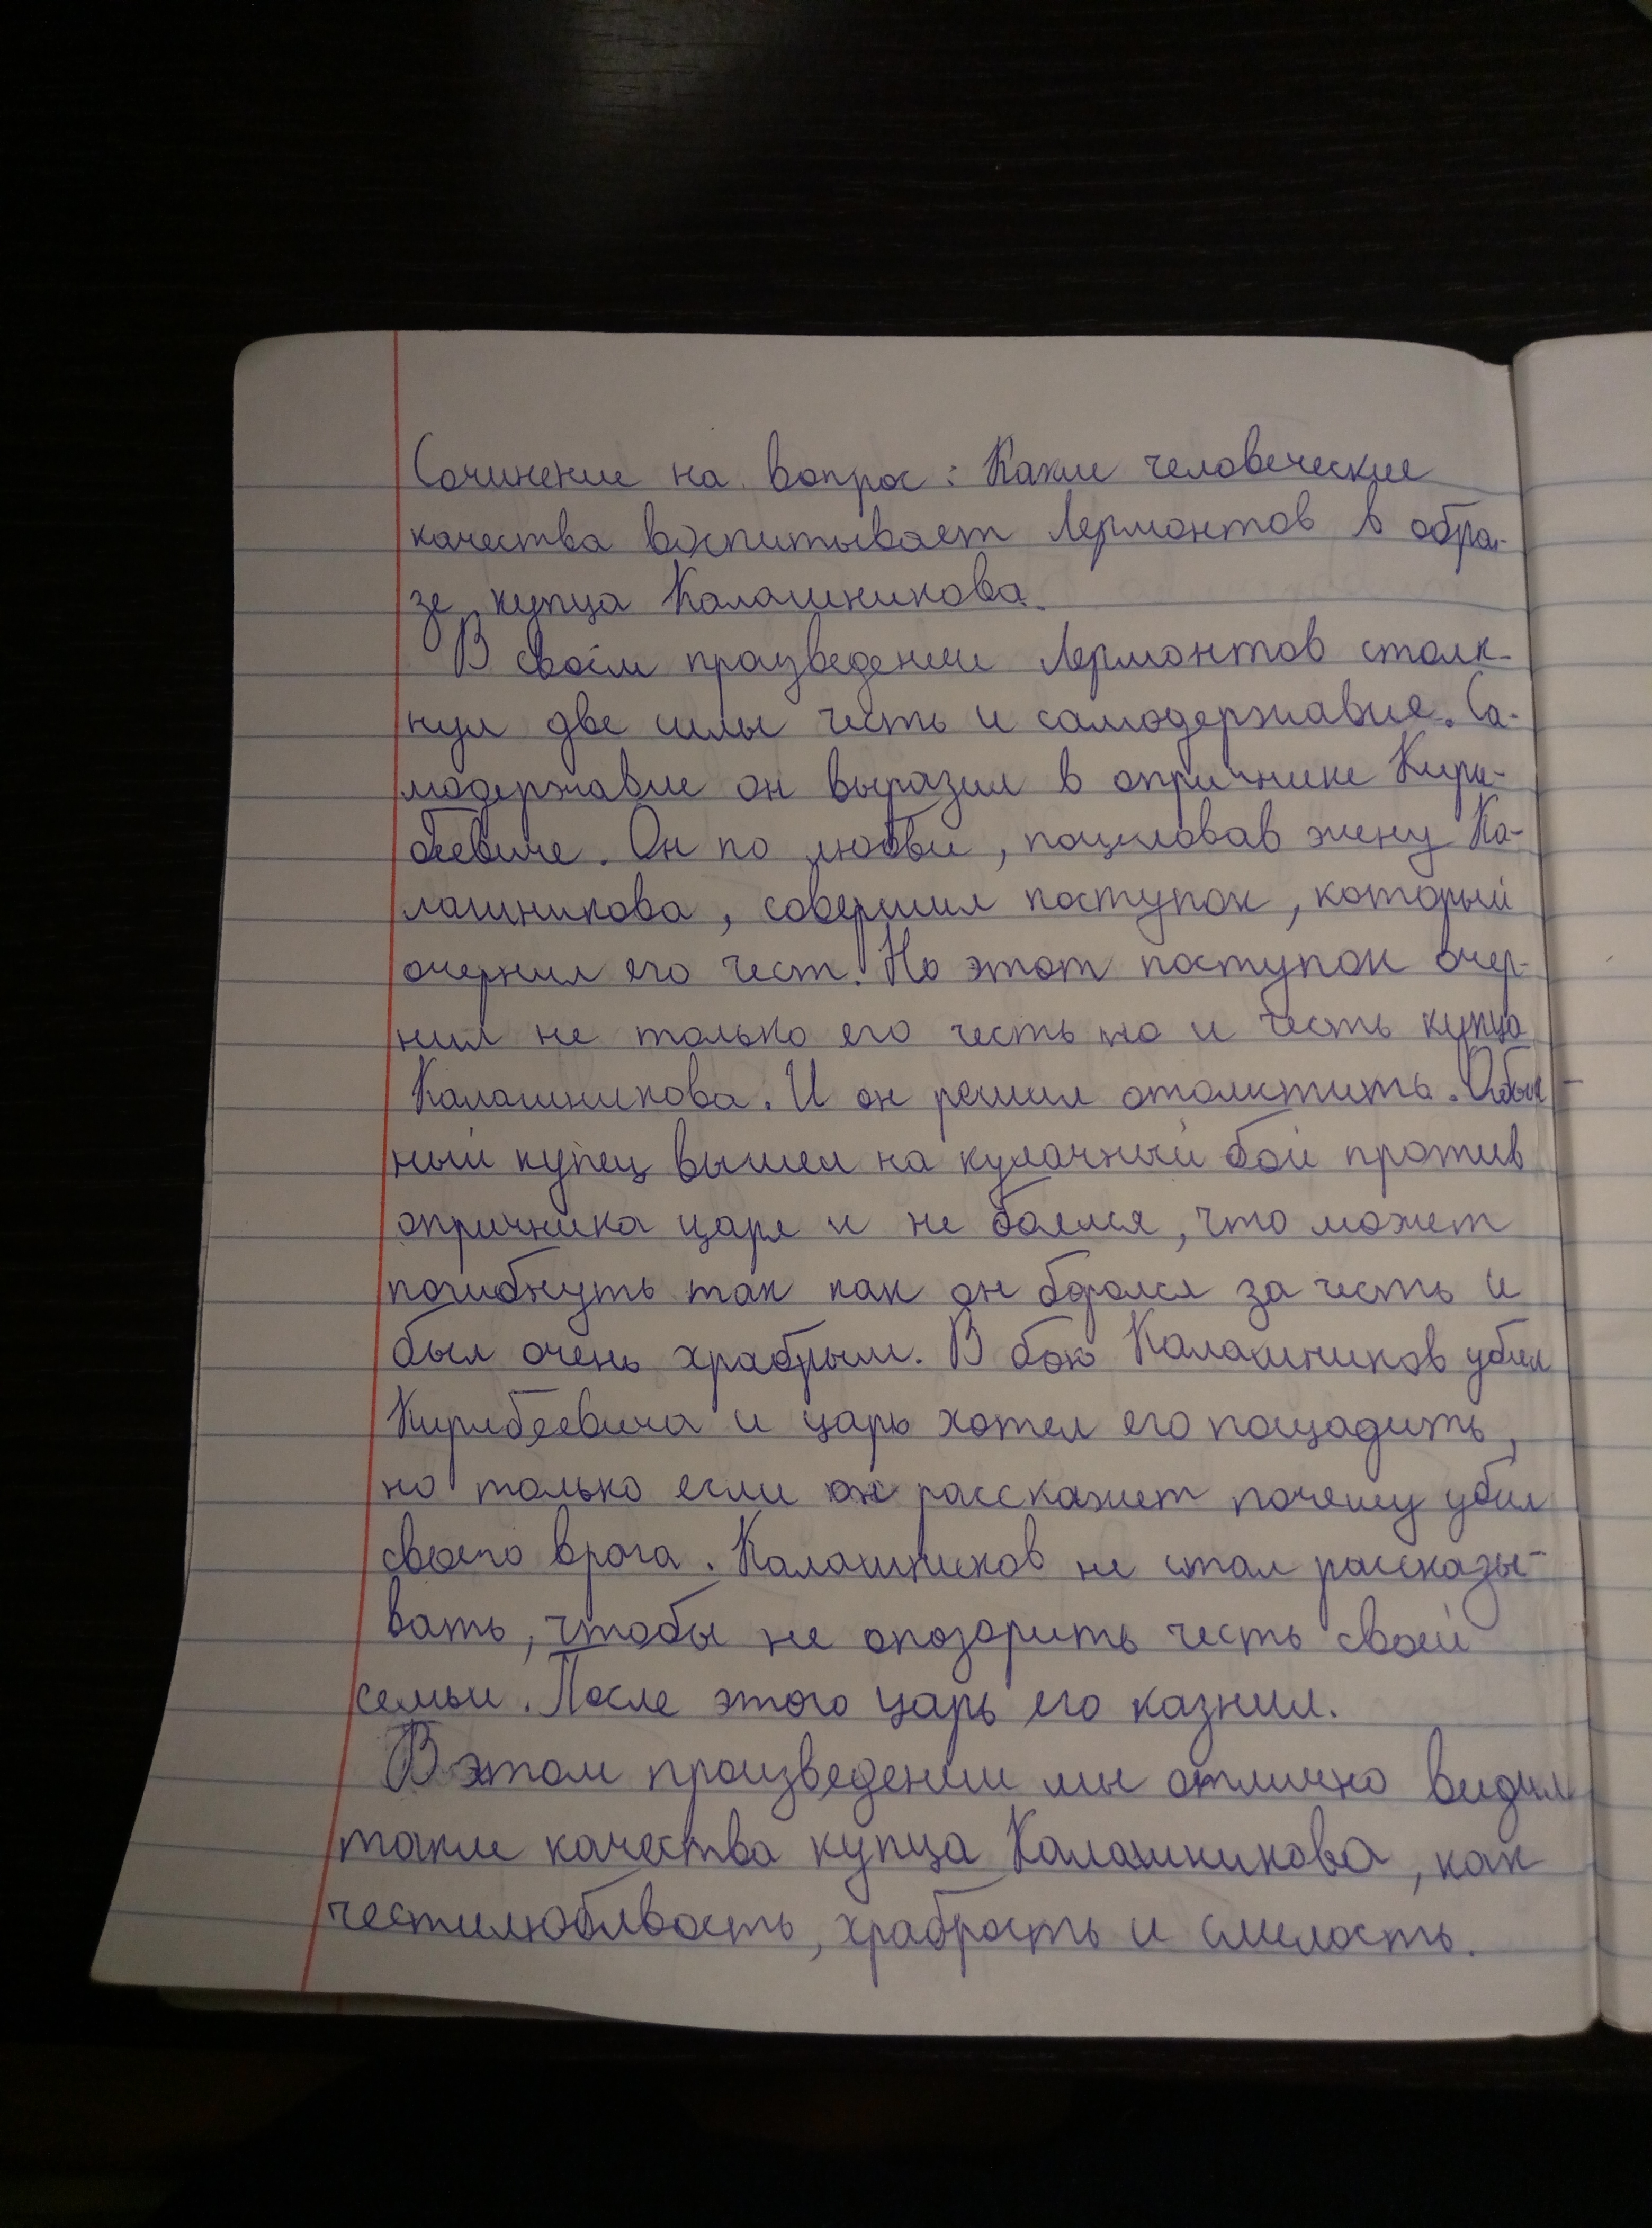 Сочинение на вопрос: Какие человеческие
качества воспитывает Лермонтов в обра-
зе купца Калашникова.
В своём произведении Лермонтов столк-
нул две силы честь и самодержавие. Са-
модержавие он выразил в опричнике Кири-
беевиче. Он по любви, поцеловав жену Ка-
лашникова, совершил поступок, который
очернил его чест. Но этот поступок очер-
нил не только его честь но и честь купца
Калашникова. И он решил отомстить. Обыч-
ный купец вышел на кулачный бой против
опричника царя и не боялся, что может
погибнуть так как он боролся за честь и
был очень храбрым. В бою Калашников убил
Кирибеевича и царь хотел его пощадить,
но только если он расскажет почему убил
своего врага. Калашников не стал рассказы-
вать, чтобы не опозорить честь своей
семьи. После этого царь его казнил.
В этом произведении мы отлично видим
такие качества купца Калашникова, как
честилюблвость, храбрость и смелость.